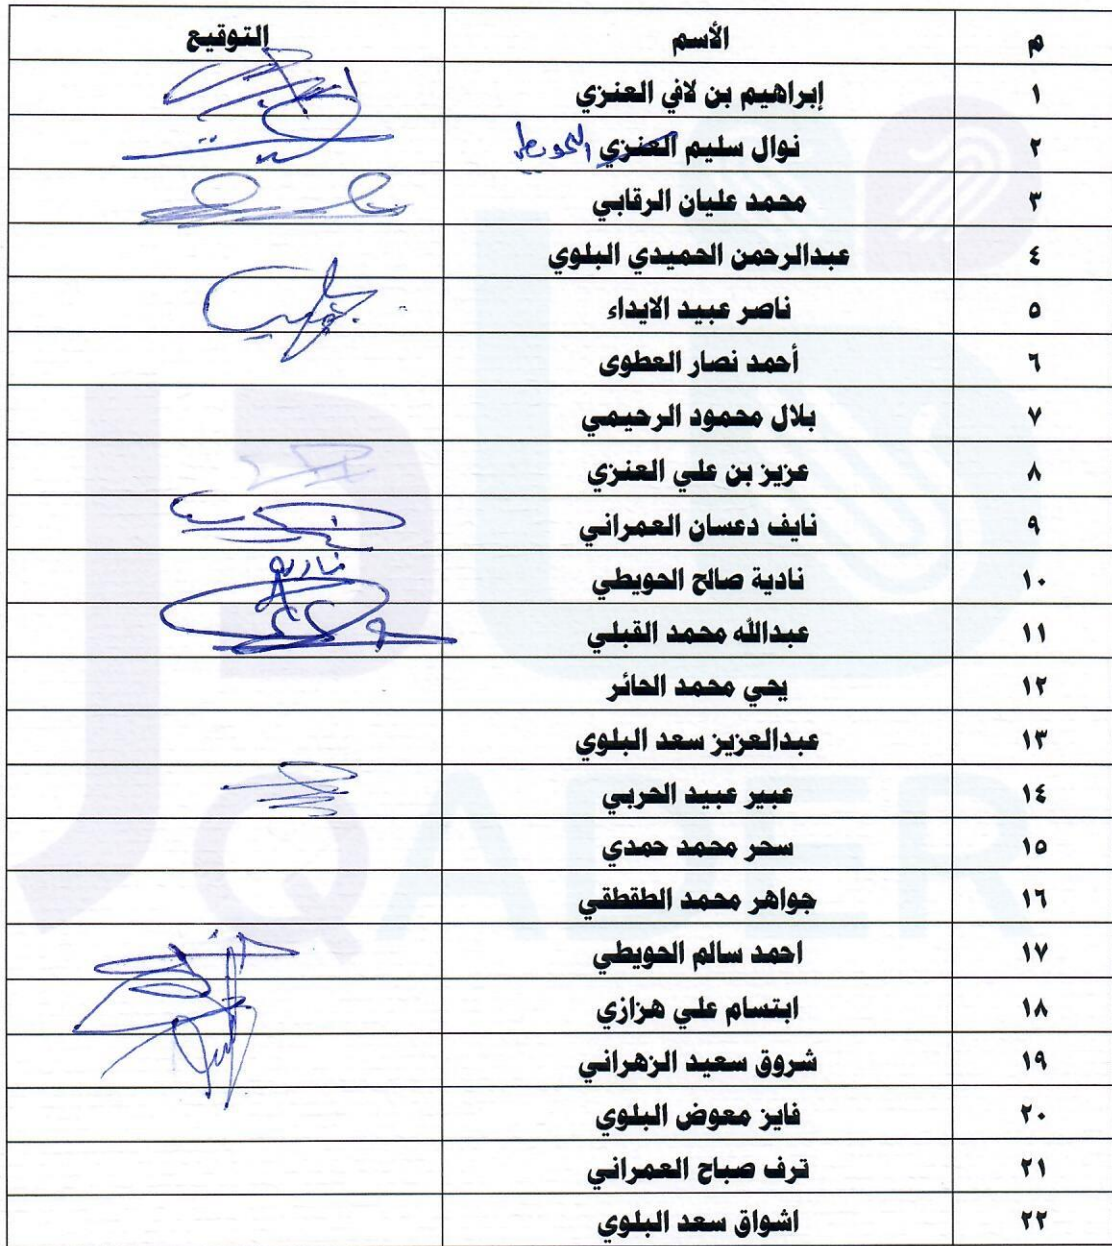 م الأسم التوقيع
١ إبراهيم بن لافي العنزي
٢ نوال سليم العنزي الحويطي
٣ محمد عليان الرقابي
٤ عبدالرحمن الحميدي البلوي
٥ ناصر عبيد الايداء
٦ أحمد نصار العطوى
٧ بلال محمود الرحيمي
٨ عزيز بن علي العنزي
٩ نايف دعسان العمراني
١٠ نادية صالح الحويطي نادية
١١ عبدالله محمد القبلي
١٢ يحي محمد الحائر
١٣ عبدالعزيز سعد البلوي
١٤ عبير عبيد الحربي
١٥ سحر محمد حمدي
١٦ جواهر محمد الطقطقي
١٧ احمد سالم الحويطي
١٨ ابتسام علي هزازي
١٩ شروق سعيد الزهراني
٢٠ فايز معوض البلوي
٢١ ترف صباح العمراني
٢٢ اشواق سعد البلوي
QADER